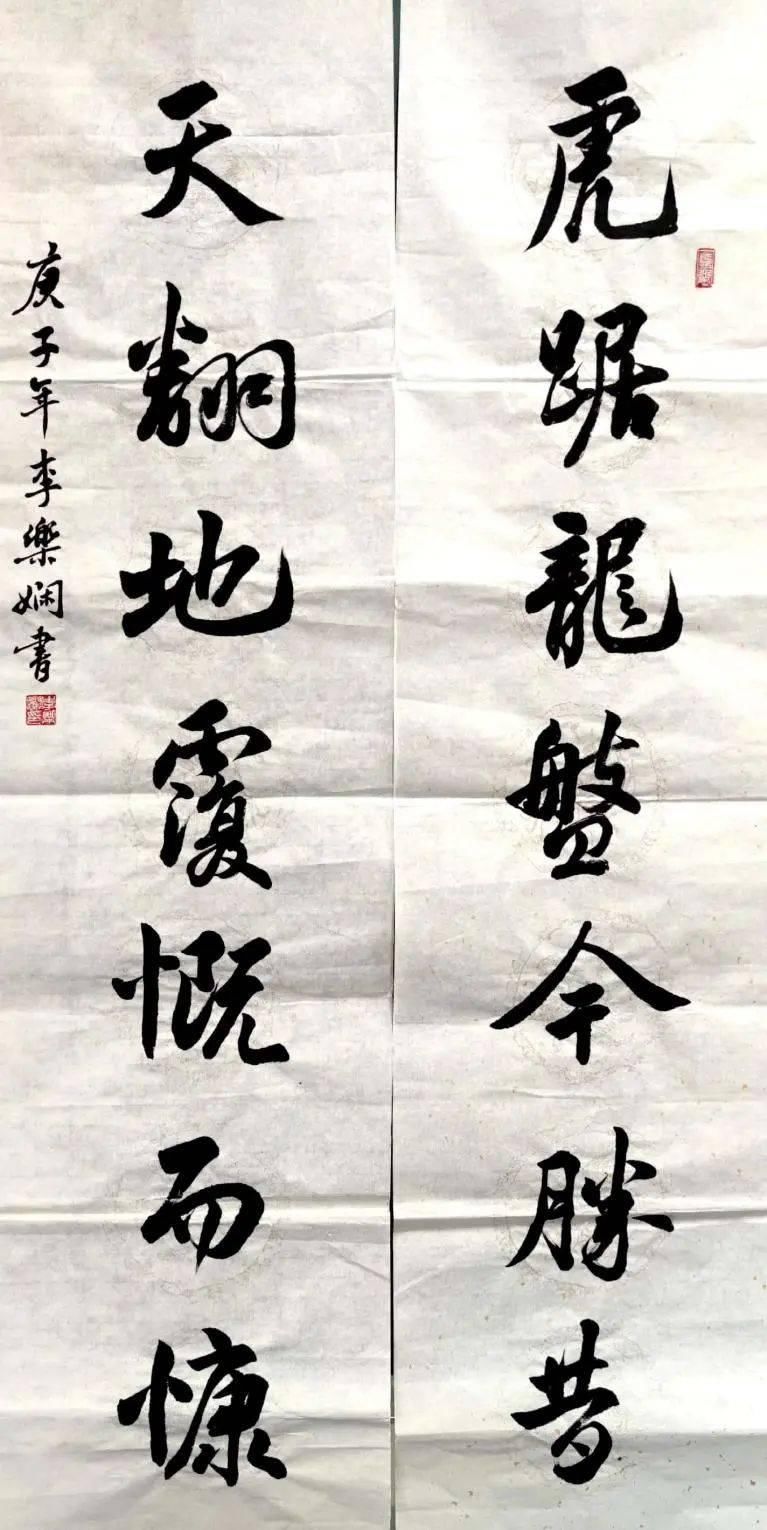 虎踞龍盤今勝昔
天翻地覆慨而慷
庚子年李樂嫻書